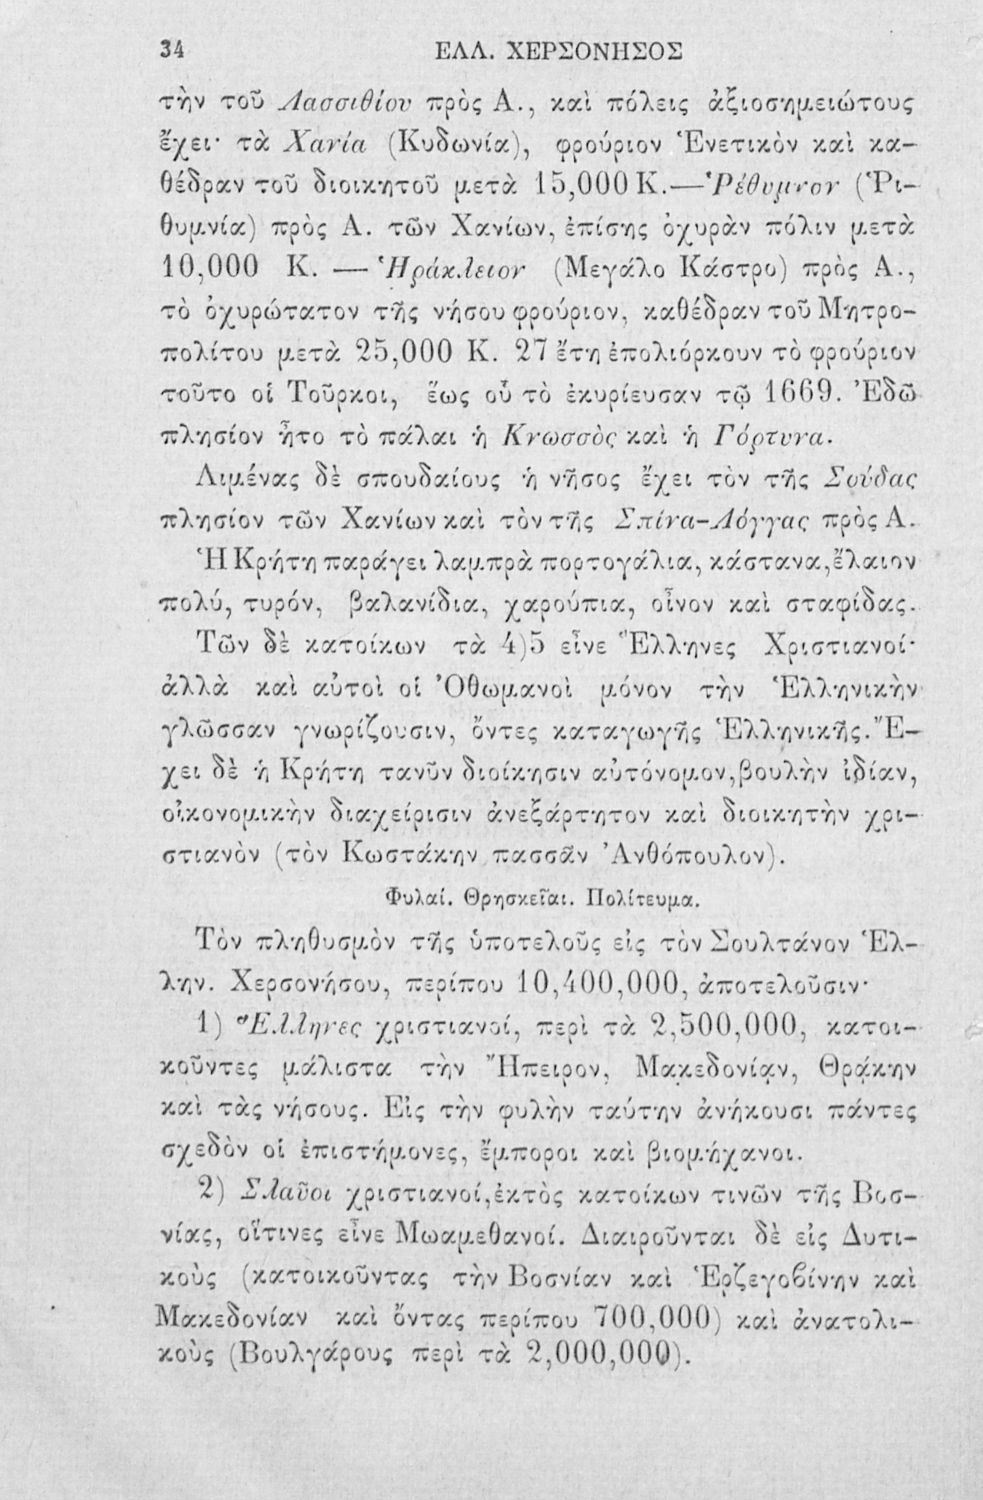 34 ΕΛΛ. ΧΕΡΣΟΝΗΣΟΣ
τὴν τοῦ Λασσιθίου πρὸς Α., καὶ πόλεις ἀξιοσημειώτους
ἔχει· τὰ Χανία (Κυδωνία), φρούριον Ἑνετικὸν καὶ κα-
θέδραν τοῦ διοικητοῦ μετὰ 15,000 Κ.—Ῥέθυμνον (Ῥι-
θυμνία) πρὸς Α. τῶν Χανίων, ἐπίσης ὀχυρὰν πόλιν μετὰ
10,000 Κ. — Ἡράκλειον (Μεγάλο Κάστρο) πρὸς Α.,
τὸ ὀχυρώτατον τῆς νήσου φρούριον, καθέδραν τοῦ Μητρο-
πολίτου μετὰ 25,000 Κ. 27 ἔτη ἐπολιόρκουν τὸ φρούριον
τοῦτο οἱ Τοῦρκοι, ἕως οὗ τὸ ἐκυρίευσαν τῷ 1669. Ἐδῶ
πλησίον ἦτο τὸ πάλαι ἡ Κνωσσὸς καὶ ἡ Γόρτυνα.
Λιμένας δὲ σπουδαίους ἡ νῆσος ἔχει τὸν τῆς Σούδας
πλησίον τῶν Χανίων καὶ τὸν τῆς Σπίνα-Λόγγας πρὸς Α.
Ἡ Κρήτη παράγει λαμπρὰ πορτογάλια, κάστανα, ἔλαιον
πολύ, τυρόν, βαλανίδια, χαρούπια, οἶνον καὶ σταφίδας.
Τῶν δὲ κατοίκων τὰ 4)5 εἶνε Ἕλληνες Χριστιανοί·
ἀλλὰ καὶ αὐτοὶ οἱ Ὀθωμανοὶ μόνον τὴν Ἑλληνικὴν
γλῶσσαν γνωρίζουσιν, ὄντες καταγωγῆς Ἑλληνικῆς. Ἔ-
χει δὲ ἡ Κρήτη τανῦν διοίκησιν αὐτόνομον, βουλὴν ἰδίαν,
οἰκονομικὴν διαχείρισιν ἀνεξάρτητον καὶ διοικητὴν χρι-
στιανὸν (τὸν Κωστάκην πασσᾶν Ἀνθόπουλον).
Φυλαί. Θρησκεῖαι. Πολίτευμα.
Τὸν πληθυσμὸν τῆς ὑποτελοῦς εἰς τὸν Σουλτάνον Ἑλ-
λην. Χερσονήσου, περίπου 10,400,000, ἀποτελοῦσιν·
1) Ἕλληνες χριστιανοί, περὶ τὰ 2,500,000, κατοι-
κοῦντες μάλιστα τὴν Ἤπειρον, Μακεδονίαν, Θράκην
καὶ τὰς νήσους. Εἰς τὴν φυλὴν ταύτην ἀνήκουσι πάντες
σχεδὸν οἱ ἐπιστήμονες, ἔμποροι καὶ βιομήχανοι.
2) Σλαῦοι χριστιανοί, ἐκτὸς κατοίκων τινῶν τῆς Βοσ-
νίας, οἵτινες εἶνε Μωαμεθανοί. Διαιροῦνται δὲ εἰς Δυτι-
κοὺς (κατοικοῦντας τὴν Βοσνίαν καὶ Ἑρζεγοβίνην καὶ
Μακεδονίαν καὶ ὄντας περίπου 700,000) καὶ ἀνατολι-
κοὺς (Βουλγάρους περὶ τὰ 2,000,000).